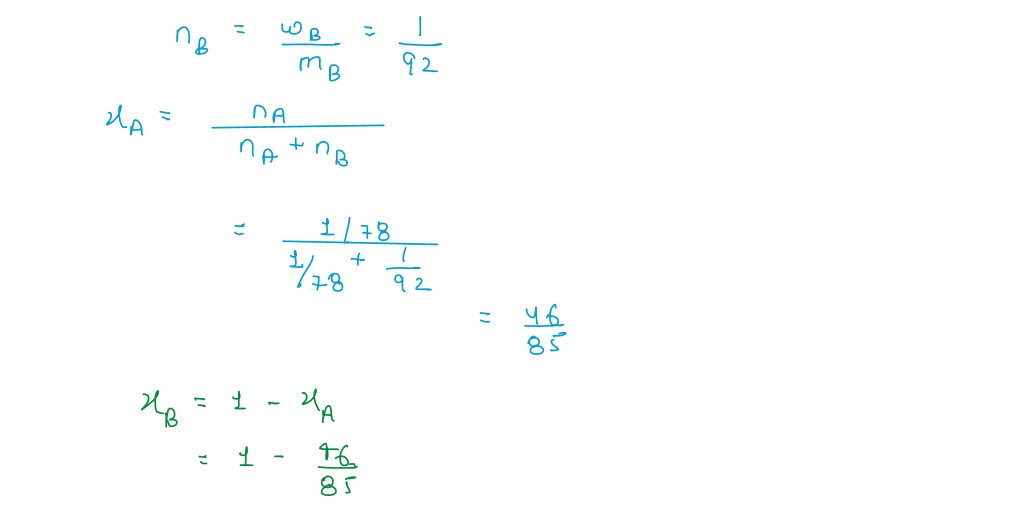 n_B = ω_B / m_B = 1 / 92
x_A = n_A / (n_A + n_B)
= (1/78) / (1/78 + 1/92)
= 46 / 85
x_B = 1 - x_A
= 1 - 46 / 85